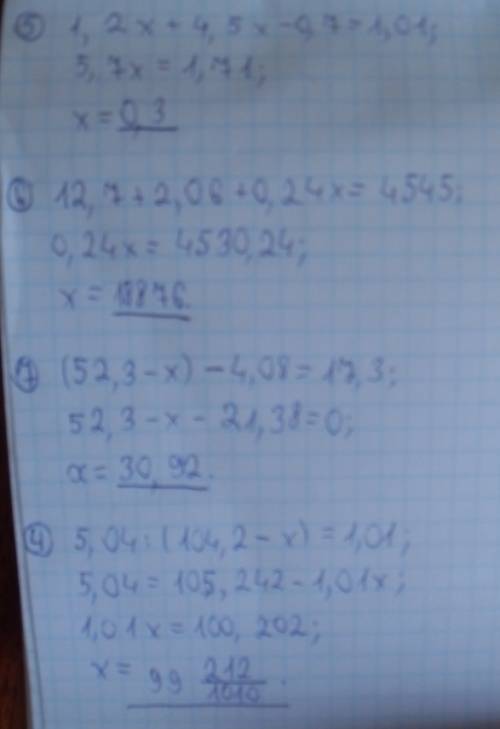 5 1,2x+4,5x-0,7=1,01;
5,7x=1,71;
x=0,3
6 12,7+2,06+0,24x=4545;
0,24x=4530,24;
x=18876.
7 (52,3-x)-4,08=17,3;
52,3-x-21,38=0;
x=30,92.
4 5,04:(104,2-x)=1,01;
5,04=105,242-1,01x;
1,01x=100,202;
x=99 212/1010.